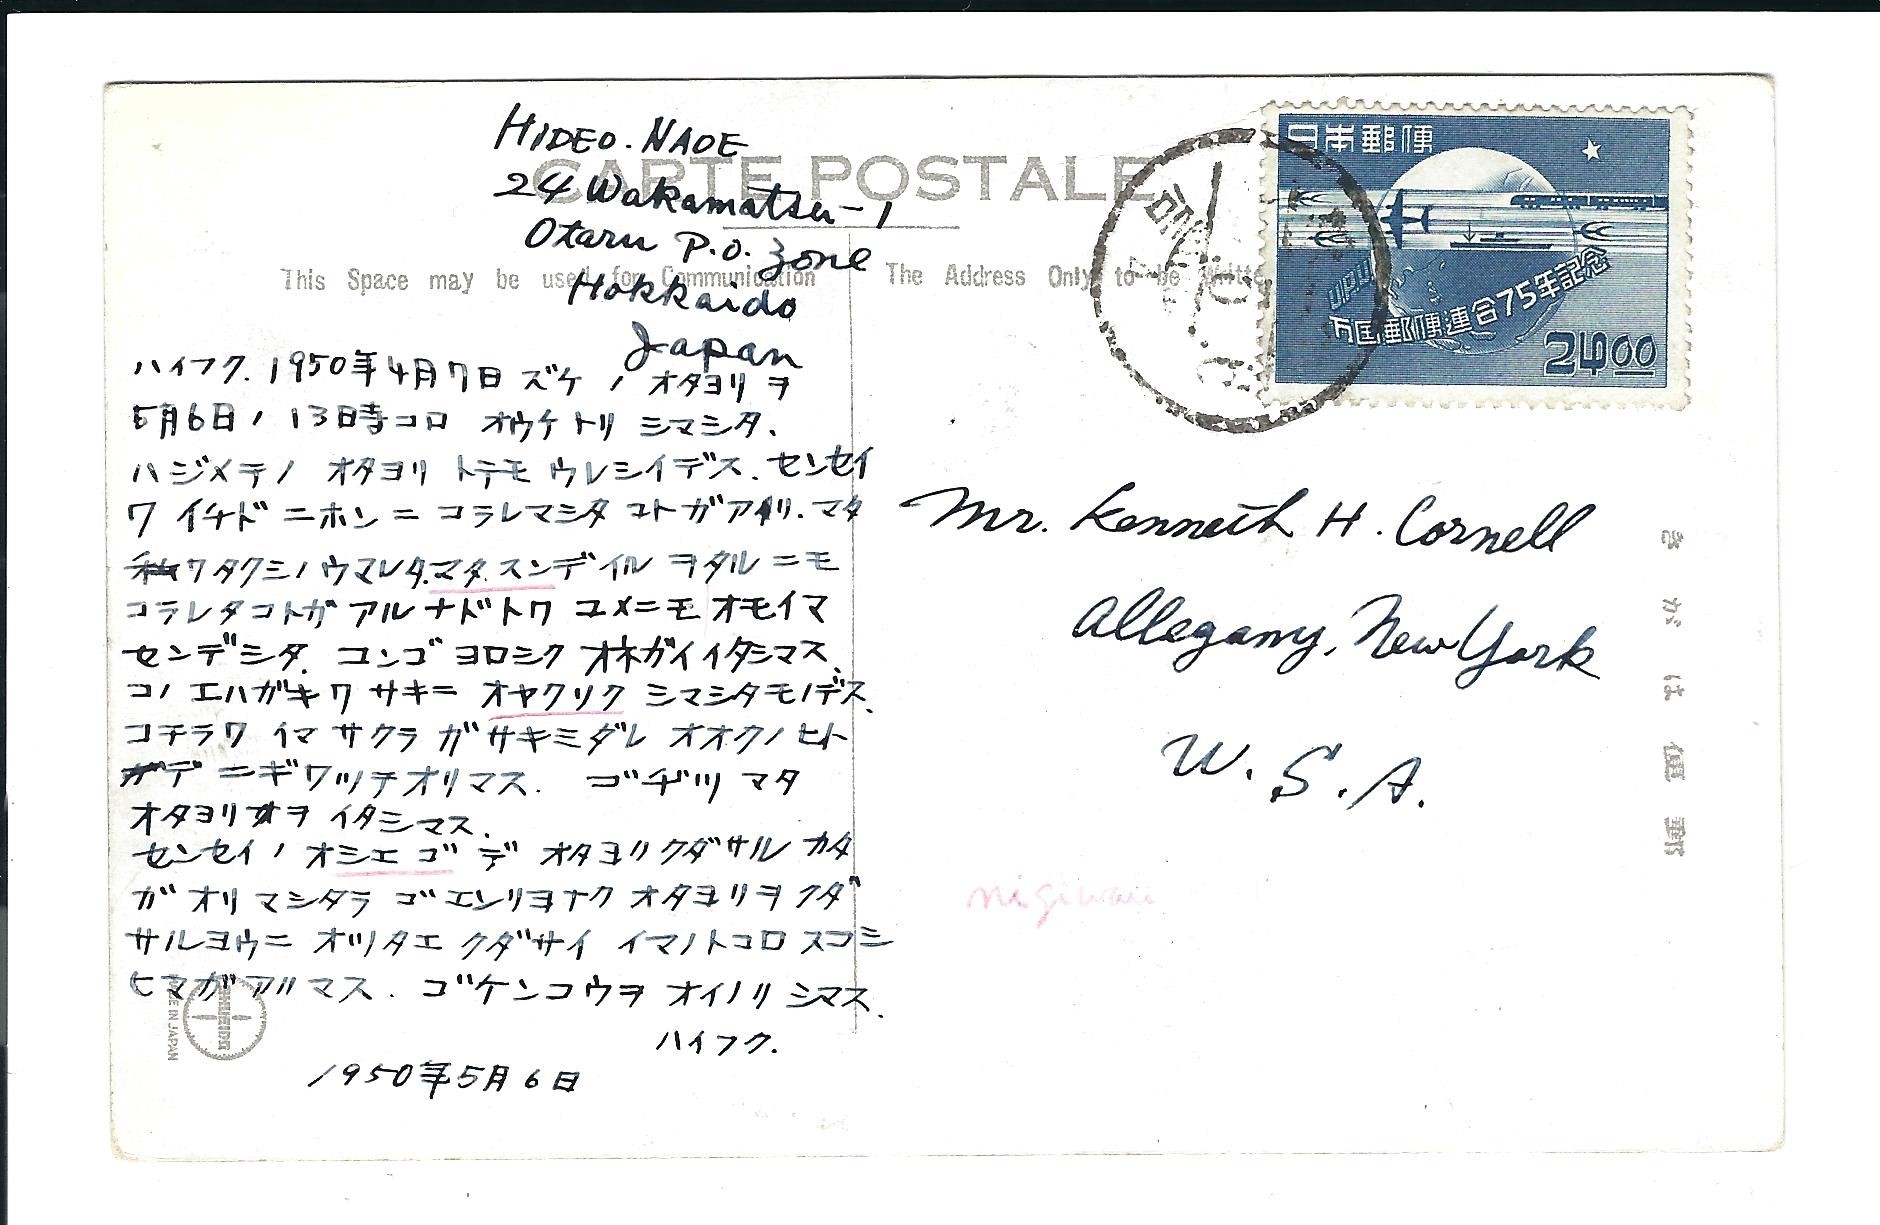 HIDEO. NAOE
24 Wakamatsu-1
Otaru P.O. Zone
Hokkaido
Japan
CARTE POSTALE
This Space may be used for Communication
The Address Only to be Writte
日本郵便
UPU
万国郵便連合75年記念
2400
ハイフク. 1950年4月7日 ズケノ オタヨリヲ
5月6日ノ 13時コロ オウケトリ シマシタ.
ハジメテノ オタヨリ トテモ ウレシイデス. センセイ
ワ イチド ニホンニ コラレマシタ コトガアリ. マタ
ワタクシノウマレタ.マタ スンデイル ヲタルニモ
コラレタコトガ アル ナドトワ ユメニモ オモイマ
センデシタ. コンゴ ヨロシク オネガイイタシマス.
コノ エハガキワ サキニ オヤクソク シマシタモノデス.
コチラワ イマ サクラ ガ サキミダレ オオクノ ヒト
デ ニギワッテオリマス. ゴヂツ マタ
オタヨリヲ イタシマス.
センセイノ オシエ ゴ デ オタヨリクダサル カタ
ガ オリ マシタラ ゴエンリヨナク オタヨリヲ クダ
サルヨウニ オツタエ クダサイ イマノトコロ スコシ
ヒマガ アリマス. ゴケンコウヲ オイノリ シマス.
ハイフク.
1950年5月6日
MADE IN JAPAN
Mr. Kenneth H. Cornell
Allegany, New York
U. S. A.
nigiwai
きがは便郵